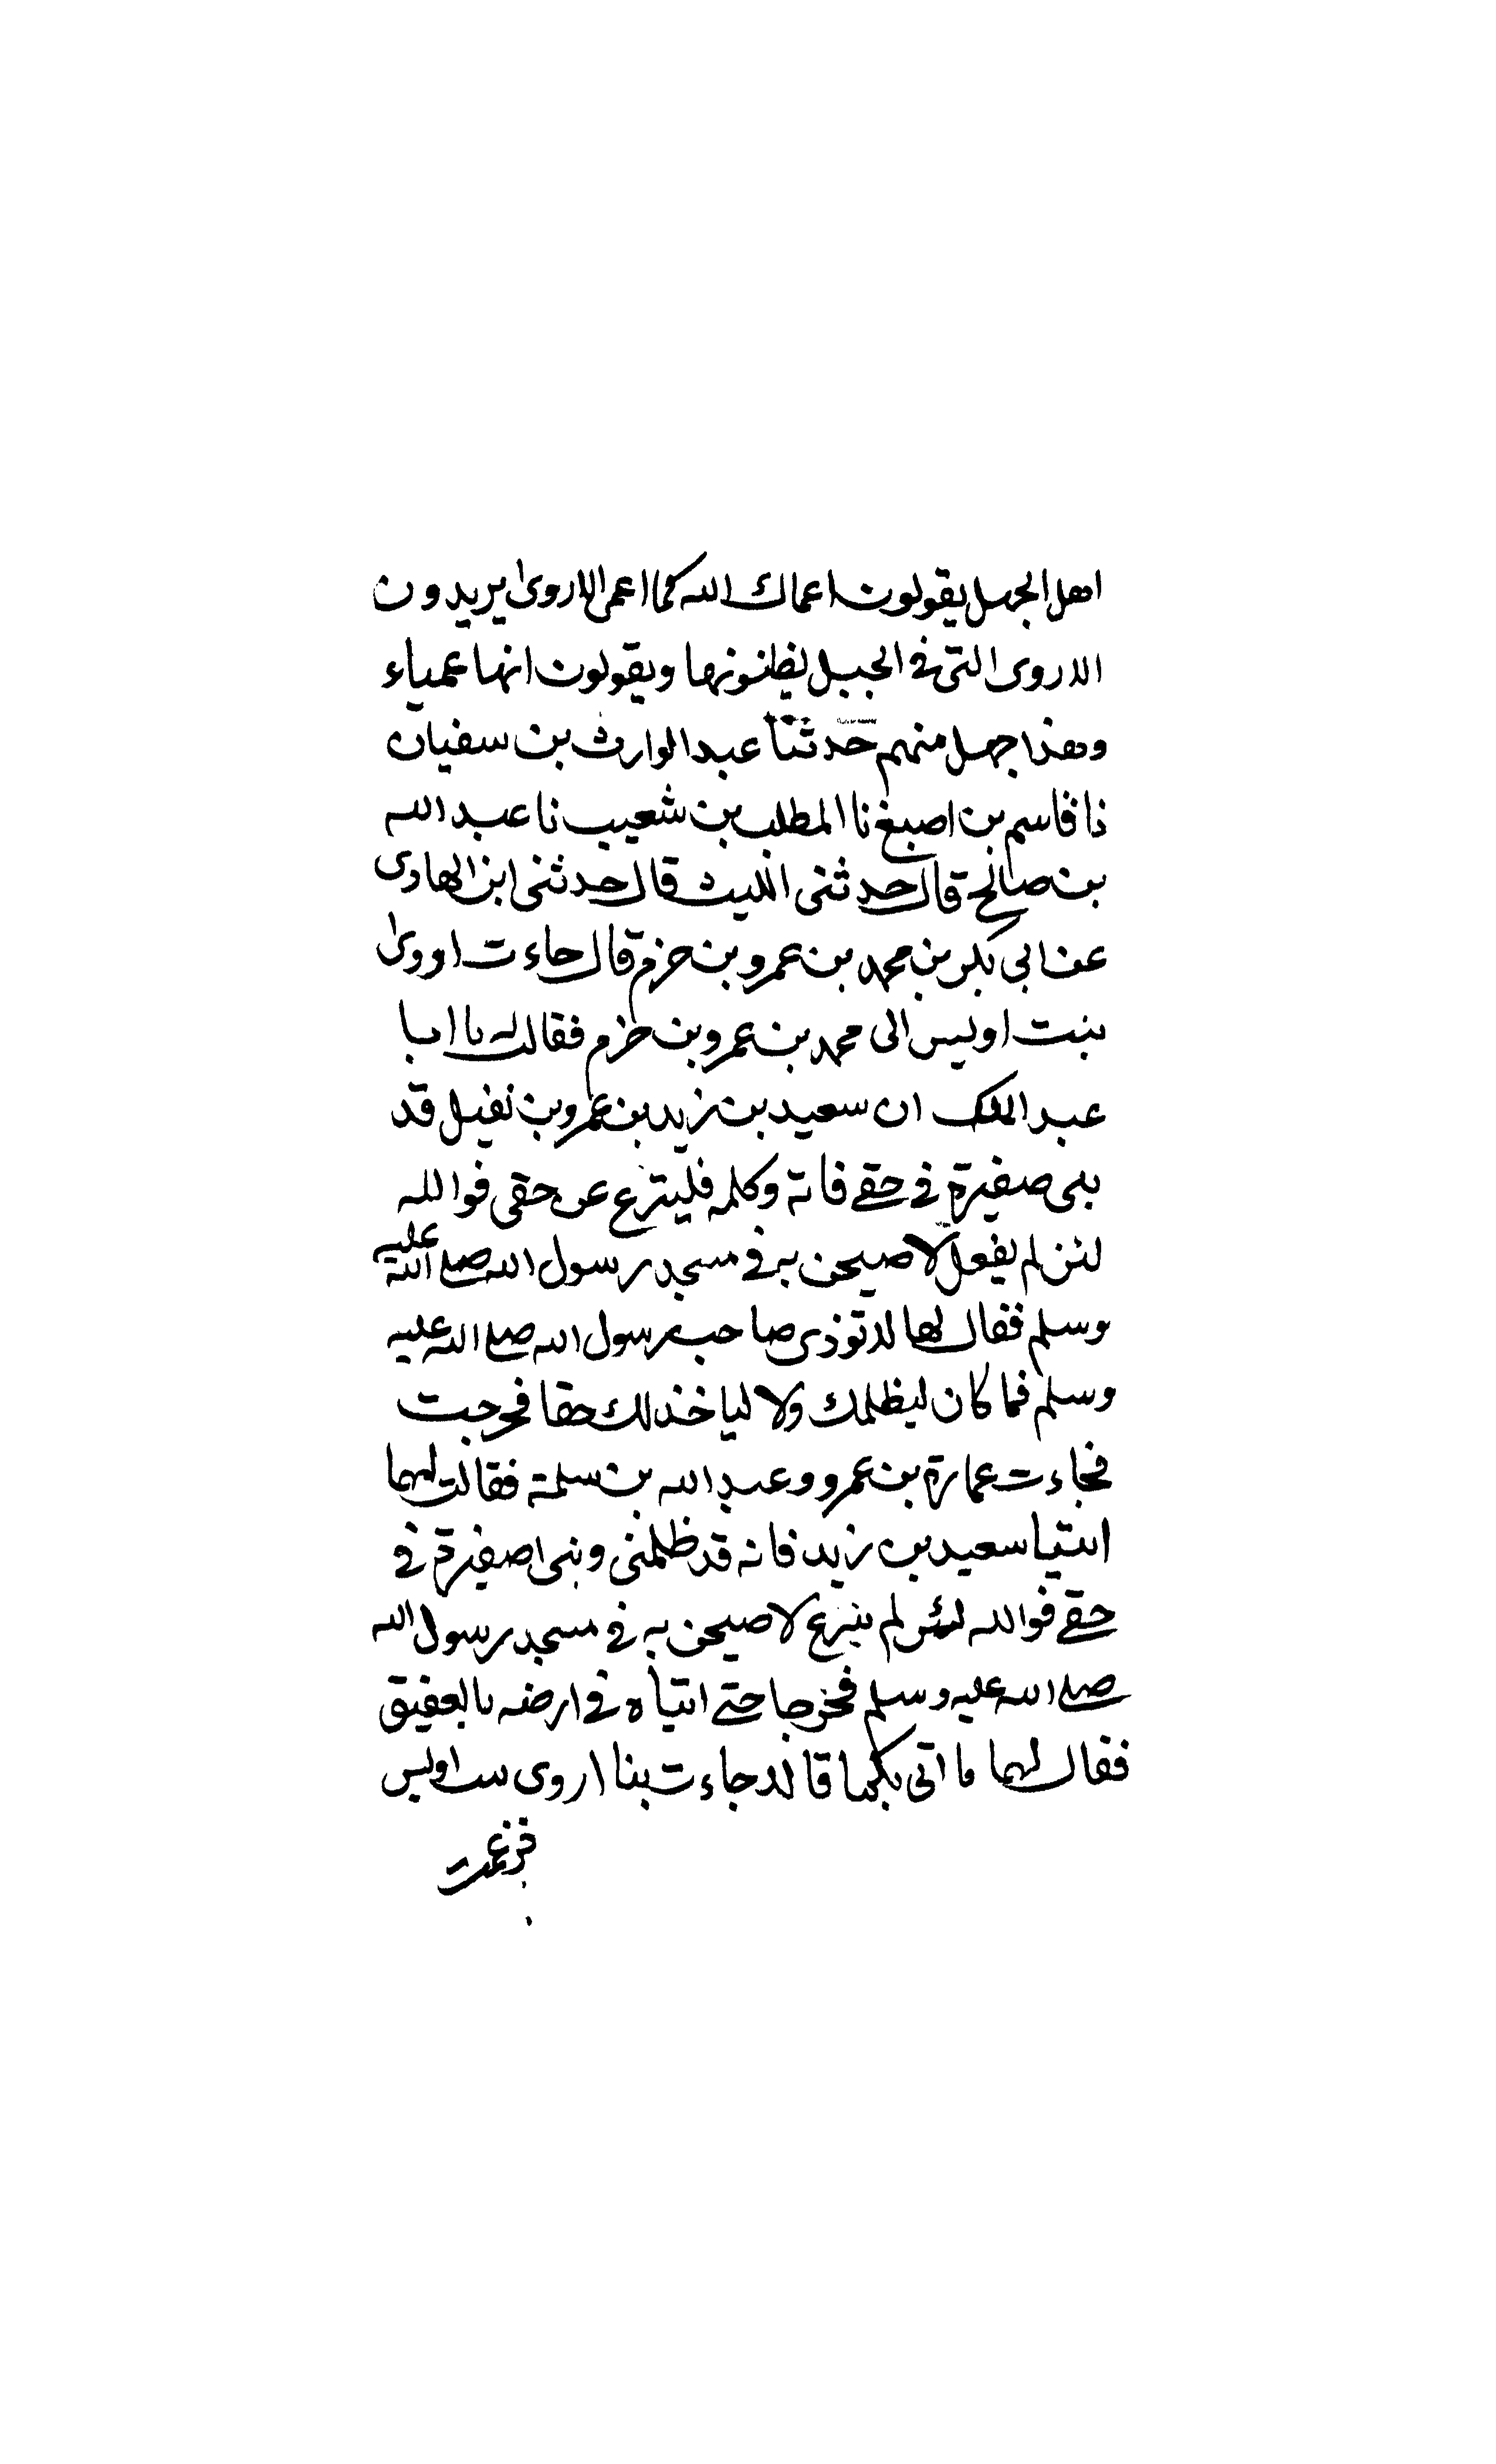 اهل الجهل يقولون اعماك الله كما اعمى الاروى يريدون
الاروى التى فى الجبل يظنونها ويقولون انها عمياء
وهذا جهل منهم حدثنا عبد الوارث بن سفيان
نا قاسم بن اصبغ نا المطلب بن شعيب نا عبد الله
بن صالح قال حدثنى الليث قال حدثنى ابن الهادى
عن ابي بكر بن محمد بن عمرو بن حزم قال جاءت اروى
بنت اويس الى محمد بن عمرو بن حزم فقالت له يا ابا
عبد الملك ان سعيد بن زيد بن عمرو بن نفيل قد
بنى صفيرة في حقے فاته وكلمه فلينزع عن حقى فوالله
لئن لم يفعل لاصيحن به فى مسجد رسول الله صلے الله عليه
وسلم فقال لها لا توذى صاحب رسول الله صلے الله عليه
وسلم فما كان ليظلمك ولا لياخذ لك حقا فخرجت
فجاءت عمارة بن عمرو وعبد الله بن سلمة فقالت لهما
ائتيا سعيد بن زيد فانه قد ظلمنى وبنى صفيرة فى
حقے فوالله لئن لم ينزع لاصيحن به فى مسجد رسول الله
صلے الله عليه وسلم فخرجا حتے اتياه فى ارضه بالعقيق
فقال لهما ما اتى بكما قالا جاءتنا اروى بنت اويس
فزعمت